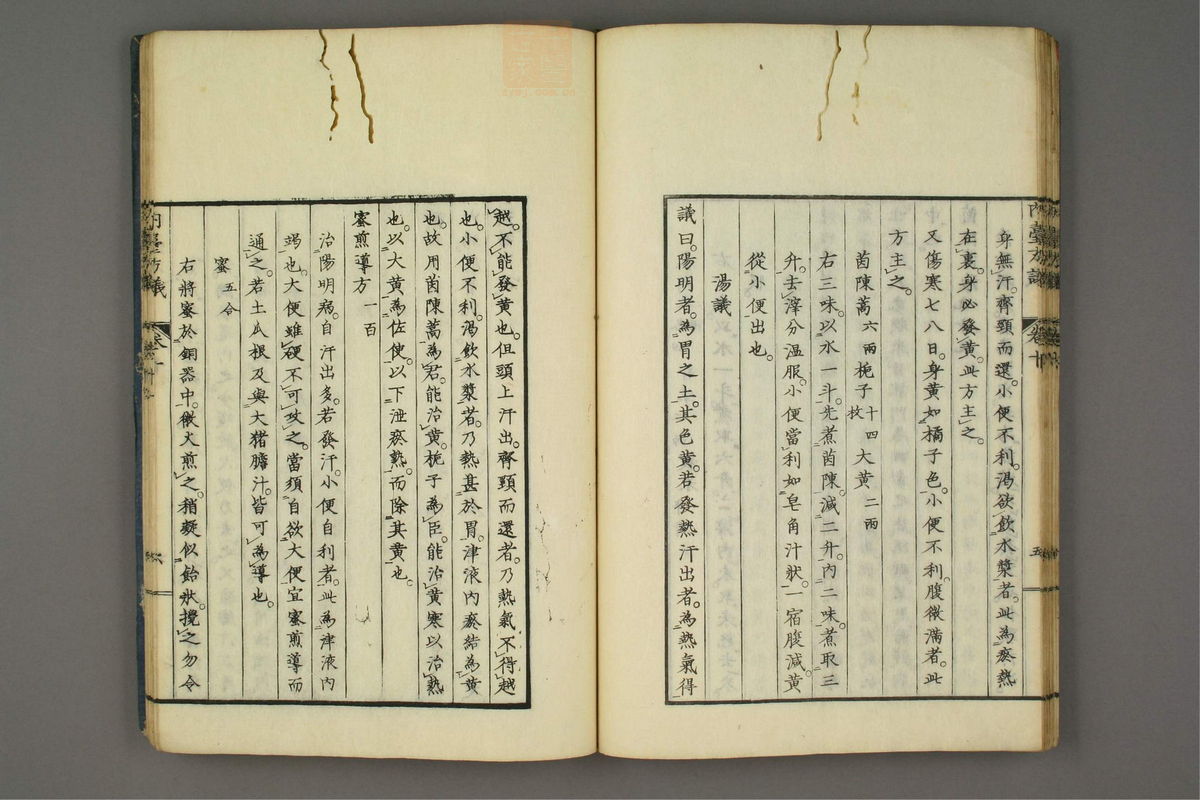 身無汗。齊頸而還。小便不利。渴欲飲水漿者。此為瘀熱
在裏。身必發黃。此方主之。
又傷寒七八日。身黃如橘子色。小便不利。腹微滿者。此
方主之。
茵陳蒿六兩梔子十四枚大黃二兩
右三味。以水一斗。先煮茵陳。減二升。內二味。煮取三
升。去滓。分溫服。小便當利。如皂角汁狀。一宿腹減。黃
從小便出也。
湯議
議曰。陽明者。為胃之土。其色黃。若發熱汗出者。為熱氣得
越。不能發黃也。但頭上汗出。齊頸而還者。乃熱氣不得越
也。小便不利。渴飲水漿者。乃熱甚於胃。津液內瘀結為黃
也。故用茵陳蒿為君。能治黃。梔子為臣。能治黃寒以治熱
也。以大黃為佐使。以下泄瘀熱。而除其黃也。
蜜煎導方 一百
治陽明病。自汗出多。若發汗。小便自利者。此為津液內
竭也。大便雖硬不可攻之。當須自欲大便宜蜜煎導而
通之。若土瓜根及與大猪膽汁。皆可為導也。
蜜 五合
右將蜜於銅器中。微火煎之。稍凝似飴狀。攪之勿令